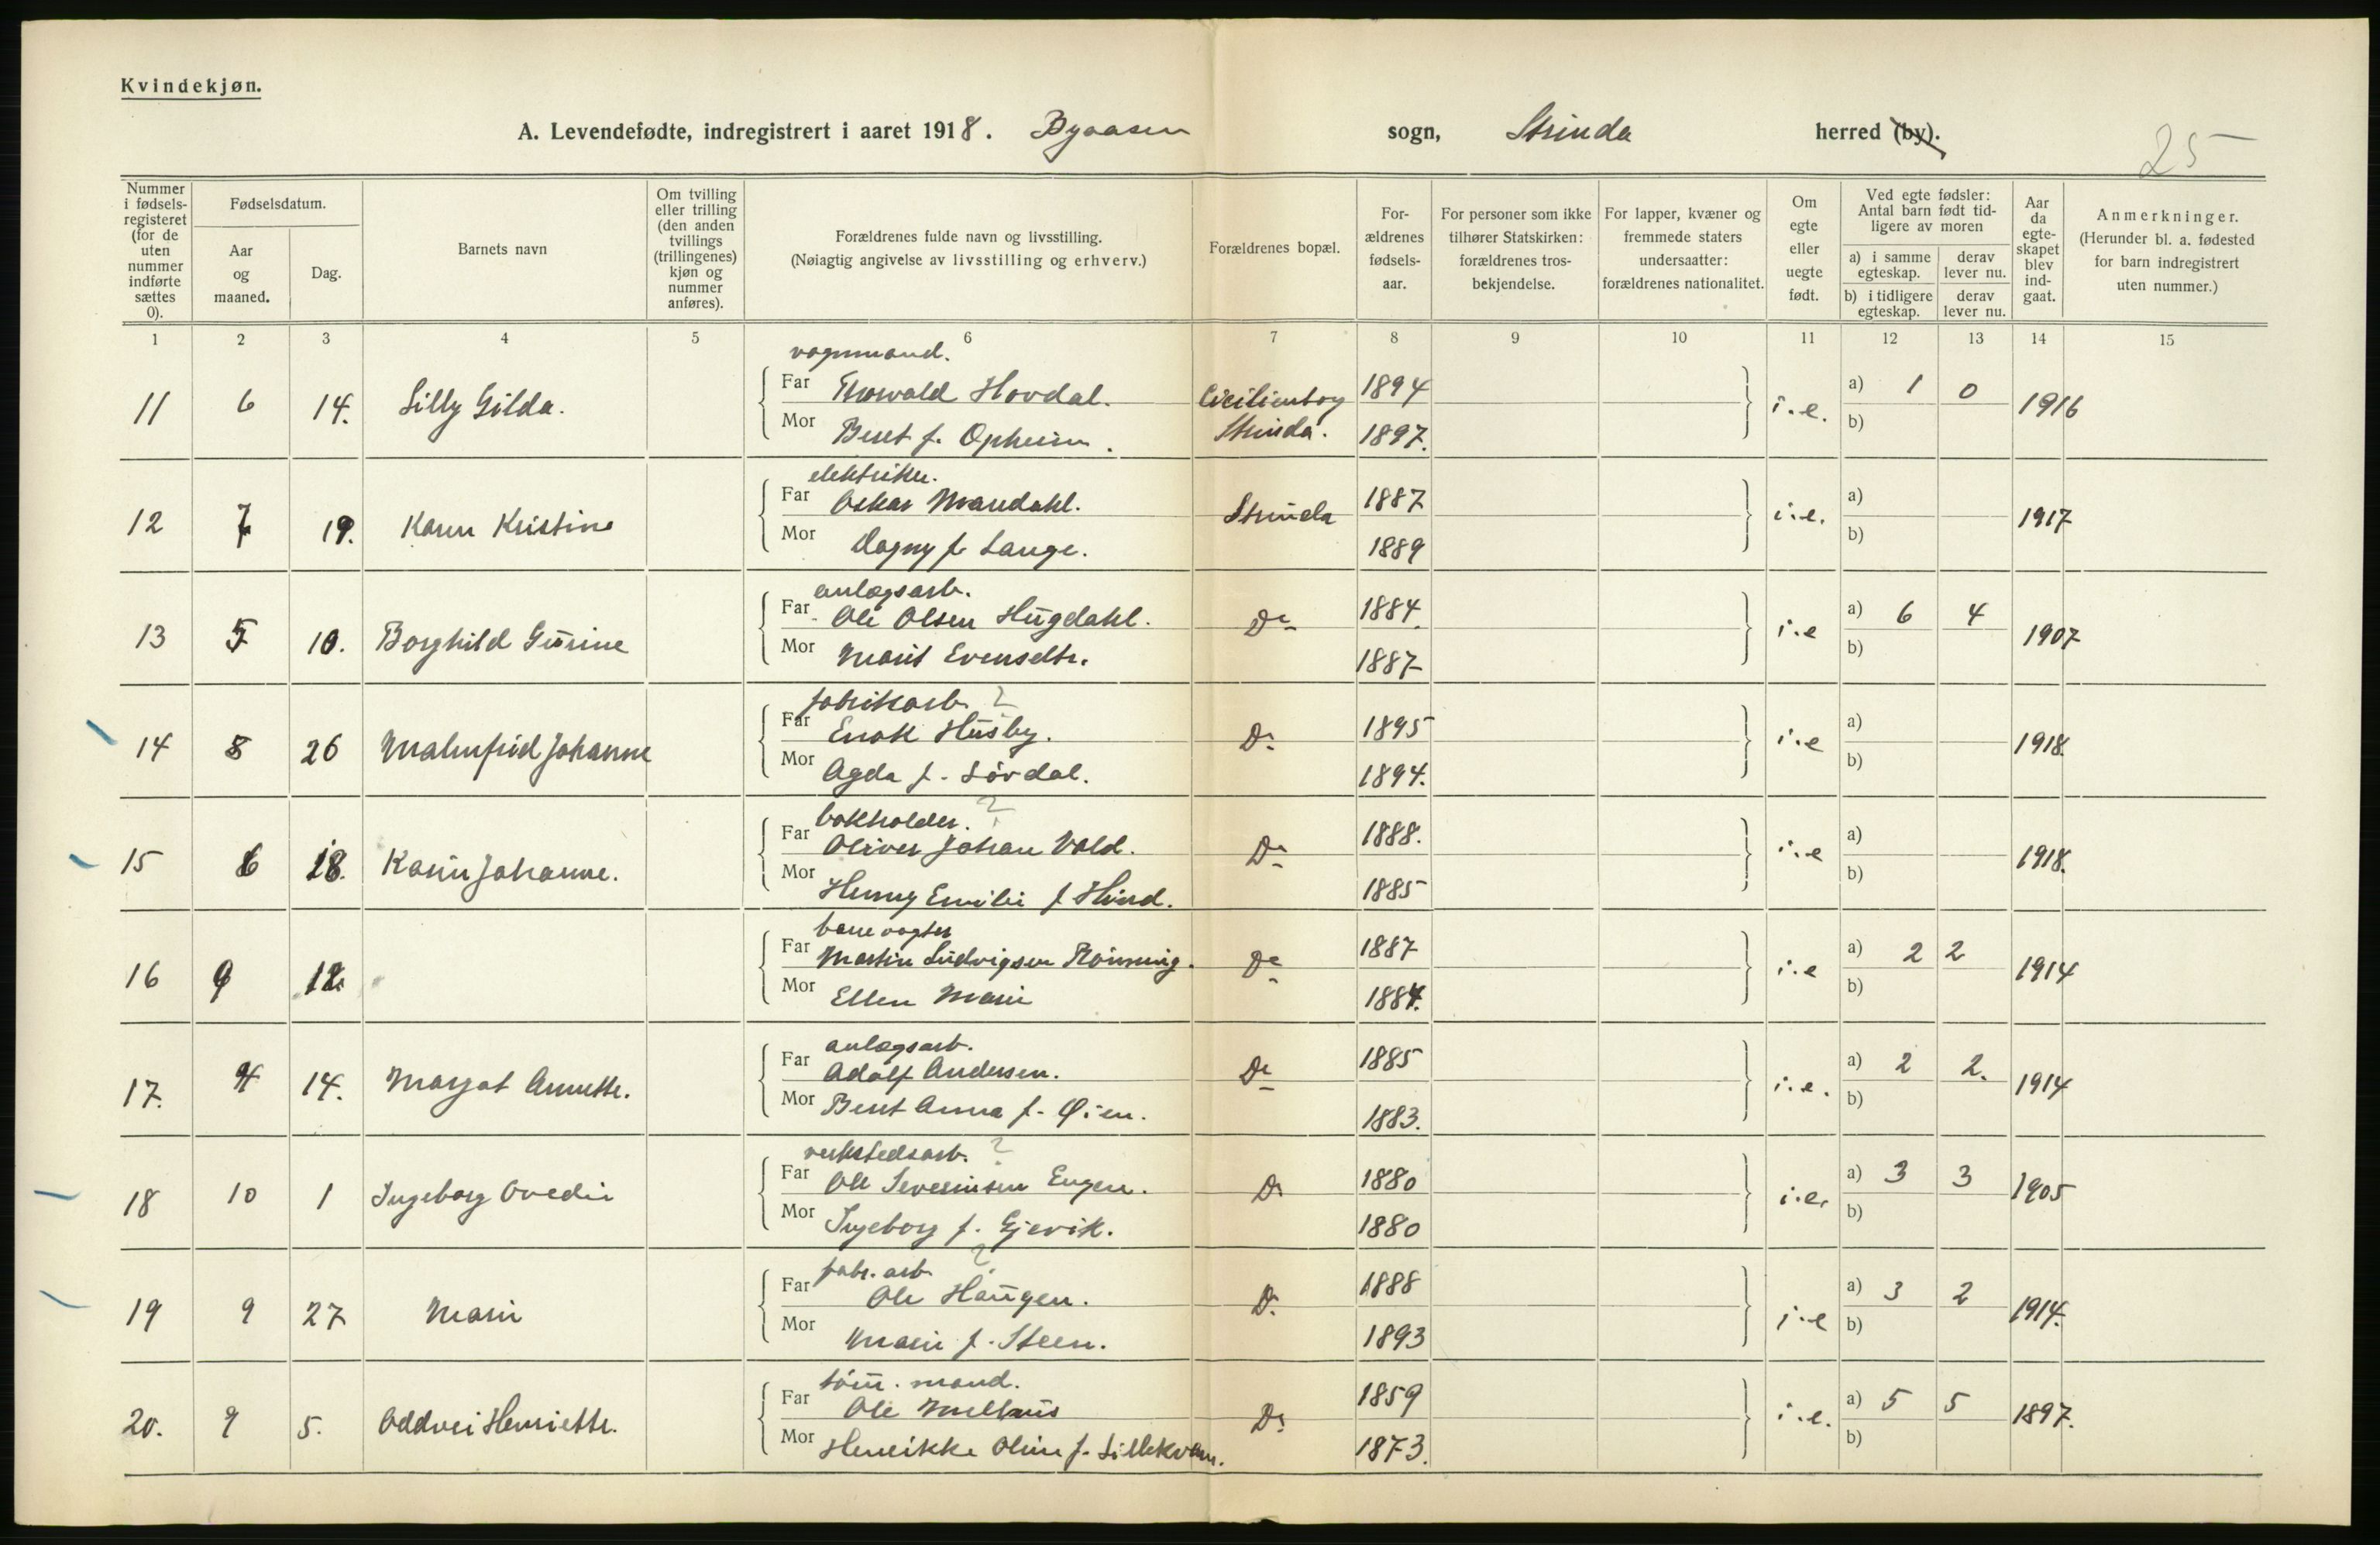 Kvindekjøn.
A. Levendefødte, indregistrert i aaret 1918. Byaasen sogn, Strinda herred (by).
25
Nummer i fødsels-registeret (for de uten nummer indførte sættes 0).
Fødselsdatum.
Aar og maaned.
Dag.
Barnets navn
Om tvilling eller trilling (den anden tvillings (trillingenes) kjøn og nummer anføres).
Forældrenes fulde navn og livsstilling.
(Nøiagtig angivelse av livsstilling og erhverv.)
Forældrenes bopæl.
For-ældrenes fødsels-aar.
For personer som ikke tilhører Statskirken: forældrenes tros-bekjendelse.
For lapper, kvæner og fremmede staters undersaatter: forældrenes nationalitet.
Om egte eller uegte født.
Ved egte fødsler: Antal barn født tid-ligere av moren
a) i samme egteskap.
derav lever nu.
b) i tidligere egteskap.
derav lever nu.
Aar da egte-skapet blev ind-gaat.
Anmerkninger.
(Herunder bl. a. fødested for barn indregistrert uten nummer.)
1 2 3 4 5 6 7 8 9 10 11 12 13 14 15
vognmand.
11 6 14. Lilly Gilda. Far Thorvald Hovdal. Cicilienborg 1894 i.e. a) 1 0 1916
Mor Beret f. Opheim. Strinda. 1897. b)
elektriker.
12 7 19. Karen Kristine Far Oskar Mandahl. Strinda 1887 i.e. a) 1917
Mor Dagny f. Lange. 1889 b)
anlægsarb.
13 5 10. Borghild Gurine Far Ole Olsen Hugdahl. Do 1884. i.e a) 6 4 1907
Mor Marit Evensdtr. 1887 b)
fabrikarb. ?
14 8 26 Malmfrid Johanne Far Enok Husby. Do 1895 i.e a) 1918.
Mor Agda f. Lørdal. 1894. b)
bokholder. ?
15 6 18. Karin Johanne. Far Oliver Johan Vold. Do 1888. i.e a) 1918.
Mor Henny Emilie f Hind. 1885 b)
banevogter
16 9 12. Far Martin Ludvigsen Rönning. Do 1887 i.e a) 2 2 1914
Mor Ellen Marie 1884. b)
anlægsarb.
17. 4 14. Margot Annette. Far Adolf Andersen. Do 1885 i.e. a) 2 2. 1914
Mor Beret Anna f. Øien. 1883. b)
verkstedsarb. ?
18 10 1 Ingeborg Ovedie Far Ole Severinsen Engen. Do 1880 i.e. a) 3 3 1905
Mor Ingeborg f. Gjevik. 1880 b)
fabr. arb. ?
19 9 27 Marie Far Ole Haugen. Do 1888 i.e a) 3 2 1914.
Mor Marie f. Steen. 1893 b)
töm. mand.
20. 9 5. Oddvei Henriette. Far Ole Melhus Do 1859 i.e. a) 5 5 1897.
Mor Henrikke Oline f. Lillekvam. 1873. b)